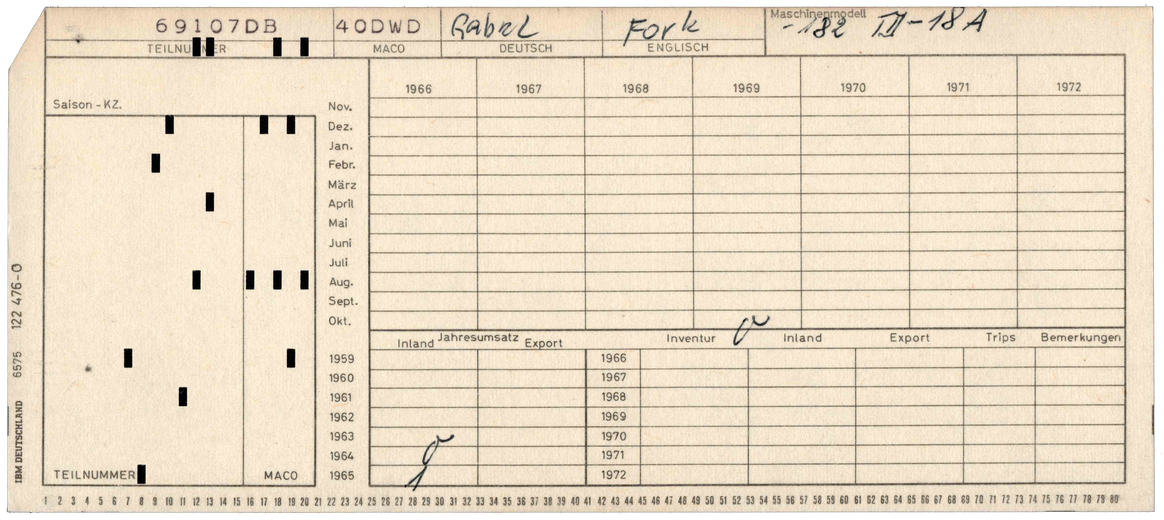 69107DB 40DWD Gabel Fork Maschinenmodell -182 III-18A
TEILNUMMER MACO DEUTSCH ENGLISCH
1966 1967 1968 1969 1970 1971 1972
Saison-KZ.
Nov.
Dez.
Jan.
Febr.
März
April
Mai
Juni
Juli
Aug.
Sept.
Okt.
Inland Jahresumsatz Export Inventur Inland Export Trips Bemerkungen
1959 1966
1960 1967
1961 1968
1962 1969
1963 1970
1964 1971
TEILNUMMER MACO 1965 1972
1 2 3 4 5 6 7 8 9 10 11 12 13 14 15 16 17 18 19 20 21 22 23 24 25 26 27 28 29 30 31 32 33 34 35 36 37 38 39 40 41 42 43 44 45 46 47 48 49 50 51 52 53 54 55 56 57 58 59 60 61 62 63 64 65 66 67 68 69 70 71 72 73 74 75 76 77 78 79 80
IBM DEUTSCHLAND 6575 122 476-0